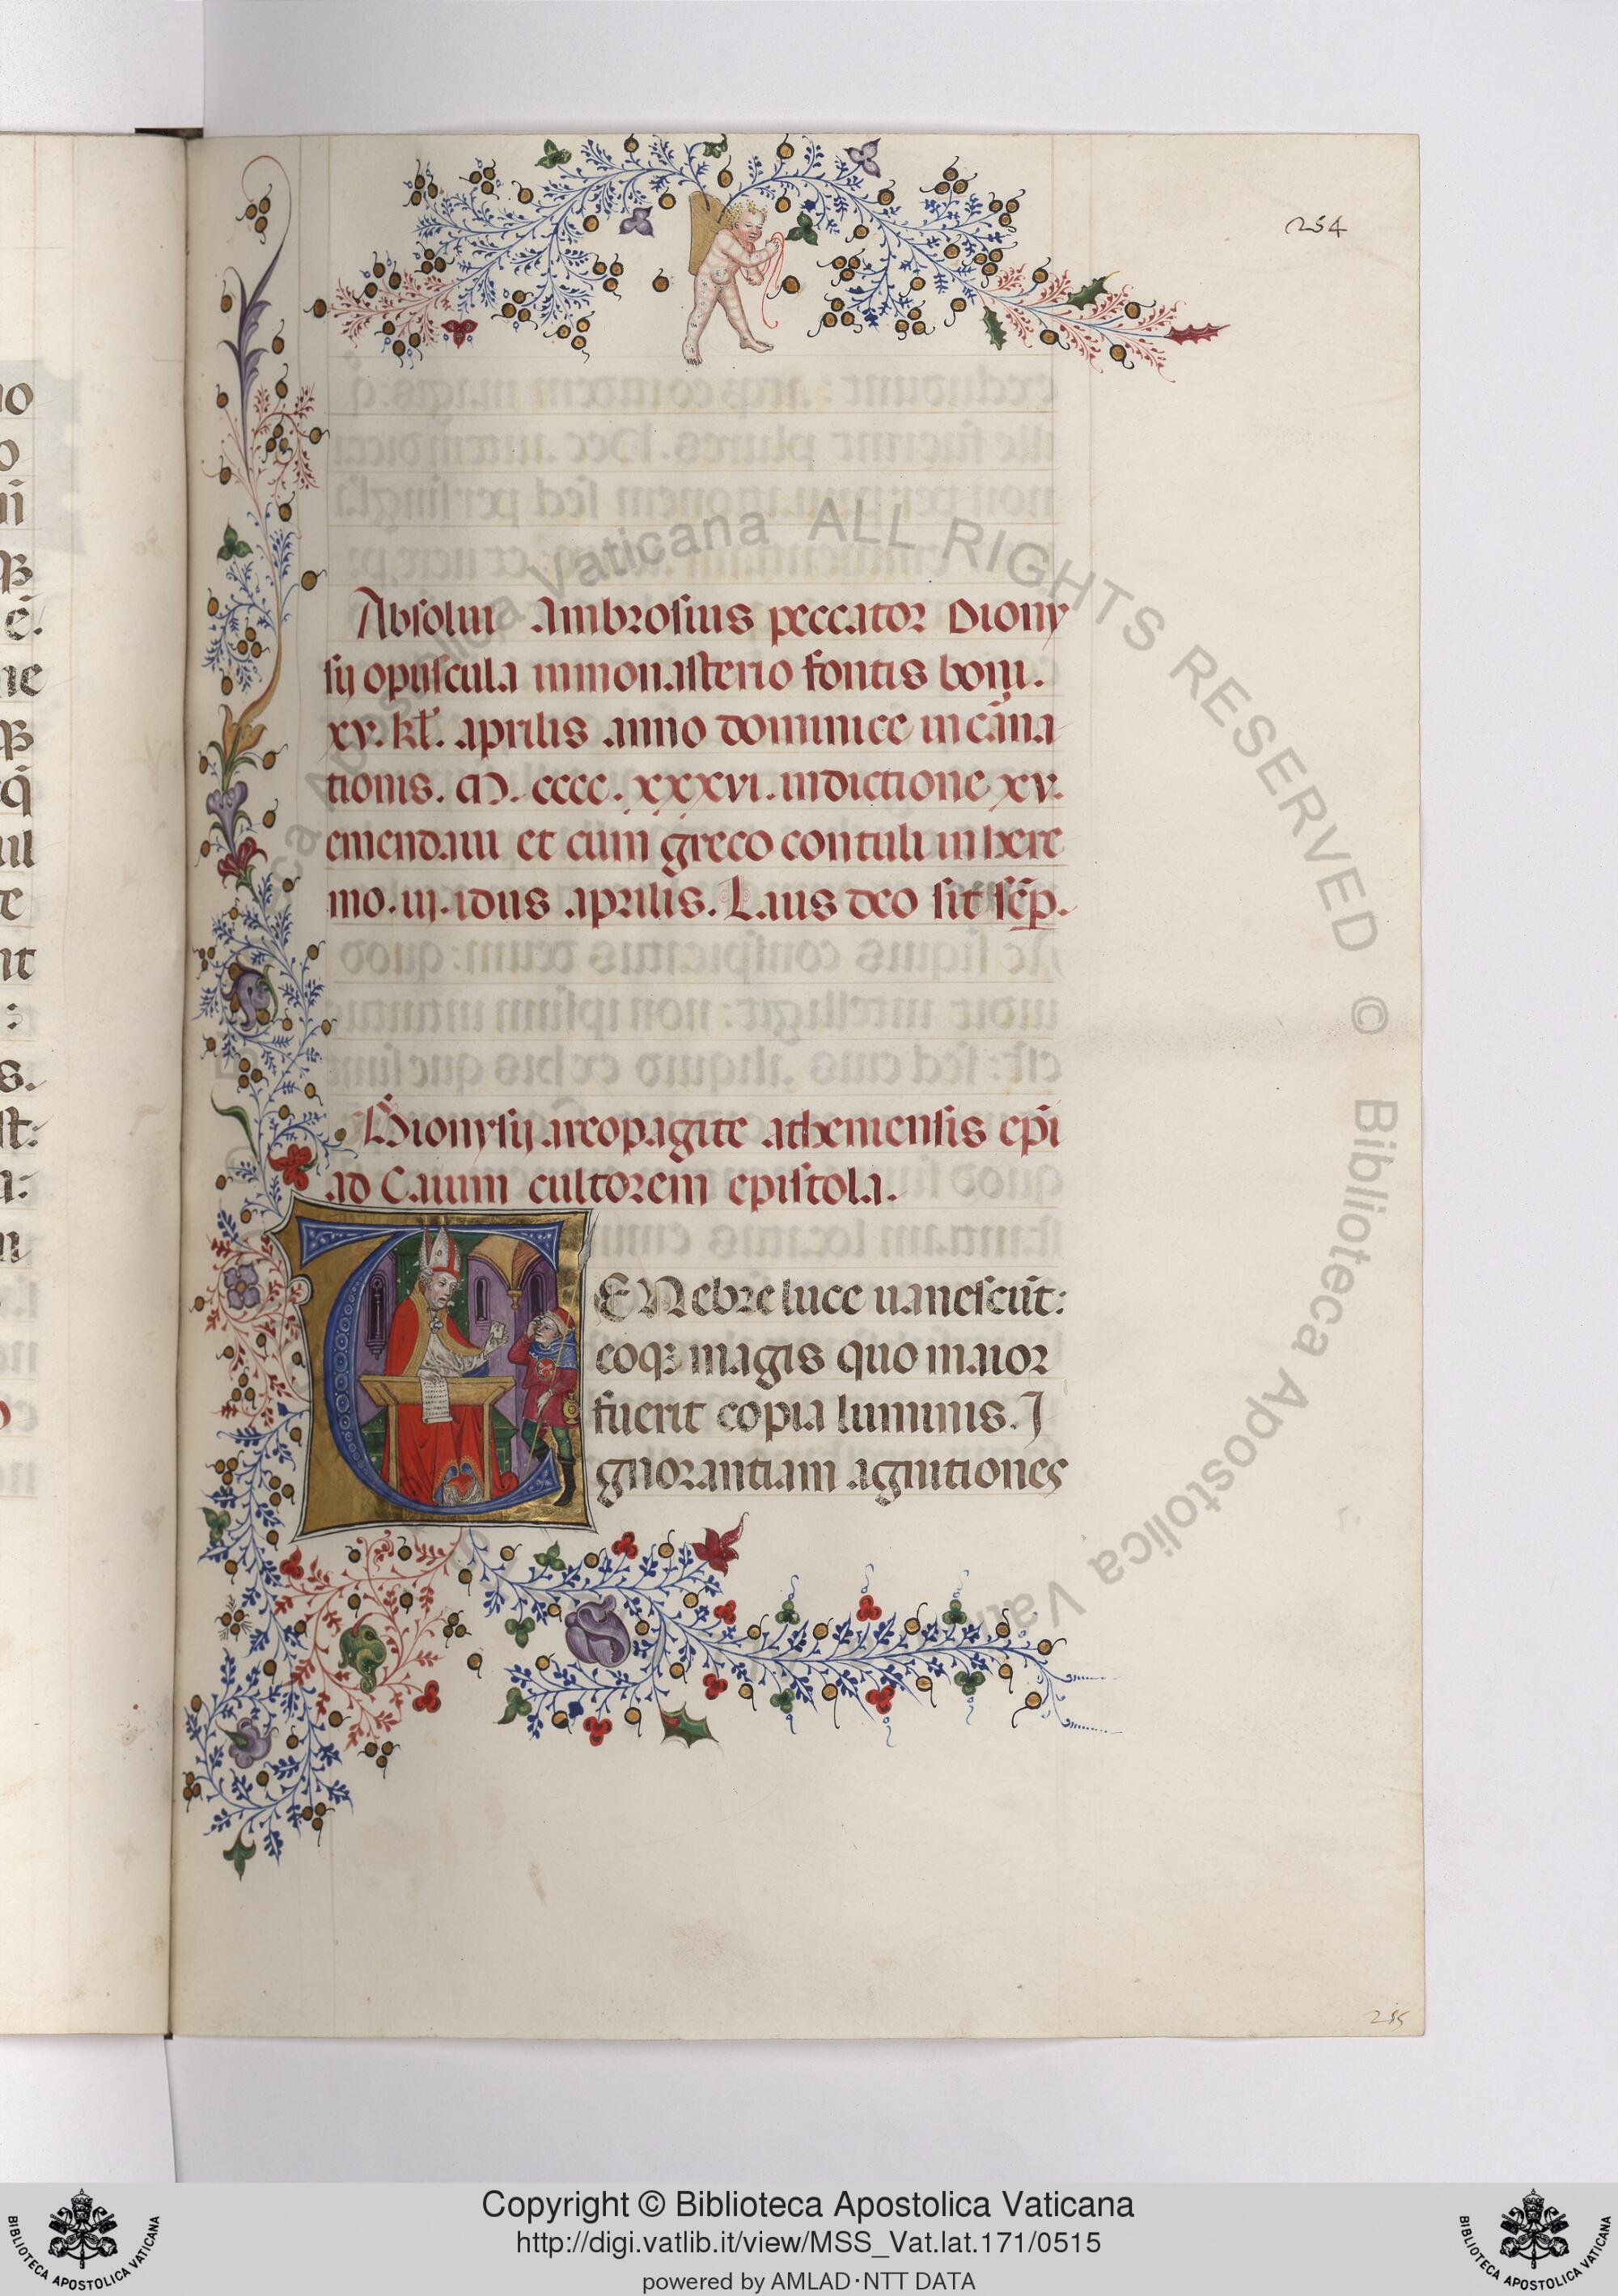 254
Absolui Ambrosius peccator Diony
sij opuscula in monasterio fontis boni.
xv. kl̄. aprilis anno dominice incarna
tionis. M. cccc. xxxvi. indictione xv.
emendaui et cum greco contuli in here
mo. iij. idus aprilis. Laus deo sit sēp.
Dionysij areopagite atheniensis ep̄i
ad Caium cultorem epistola.
TENebre luce uanescūt:
eoqꝫ magis quo maior
fuerit copia luminis. I
gnorantiam agnitiones
255
Copyright © Biblioteca Apostolica Vaticana
http://digi.vatlib.it/view/MSS_Vat.lat.171/0515
powered by AMLAD·NTT DATA
BIBLIOTECA APOSTOLICA VATICANA
BIBLIOTECA APOSTOLICA VATICANA
Biblioteca Apostolica Vaticana ALL RIGHTS RESERVED © Biblioteca Apostolica Vaticana